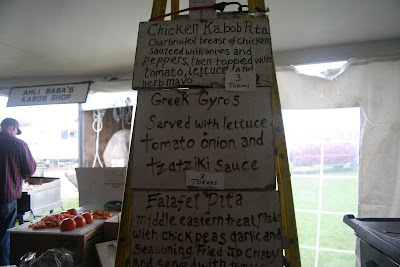 AHLI BABA'S
KABOB SHOP
Chicken Kabob Pita
Charbroiled breast of chicken
Sauteed with onions and
Peppers, then topped with
tomato, lettuce and
herb mayo
3
Tokens
Greek Gyros
Served with lettuce
tomato onion and
tzatziki sauce
3
Tokens
Falafel Pita
Middle eastern treat made
with chick peas garlic and
Seasoning Fried up crispy
and served with